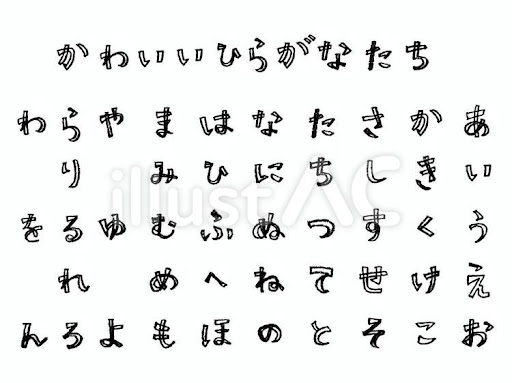 かわいいひらがなたち
わらやまはなたさかあ
りみひにちしきい
をるゆむふぬつすくう
れめへねてせけえ
んろよもほのとそこお
illustAC